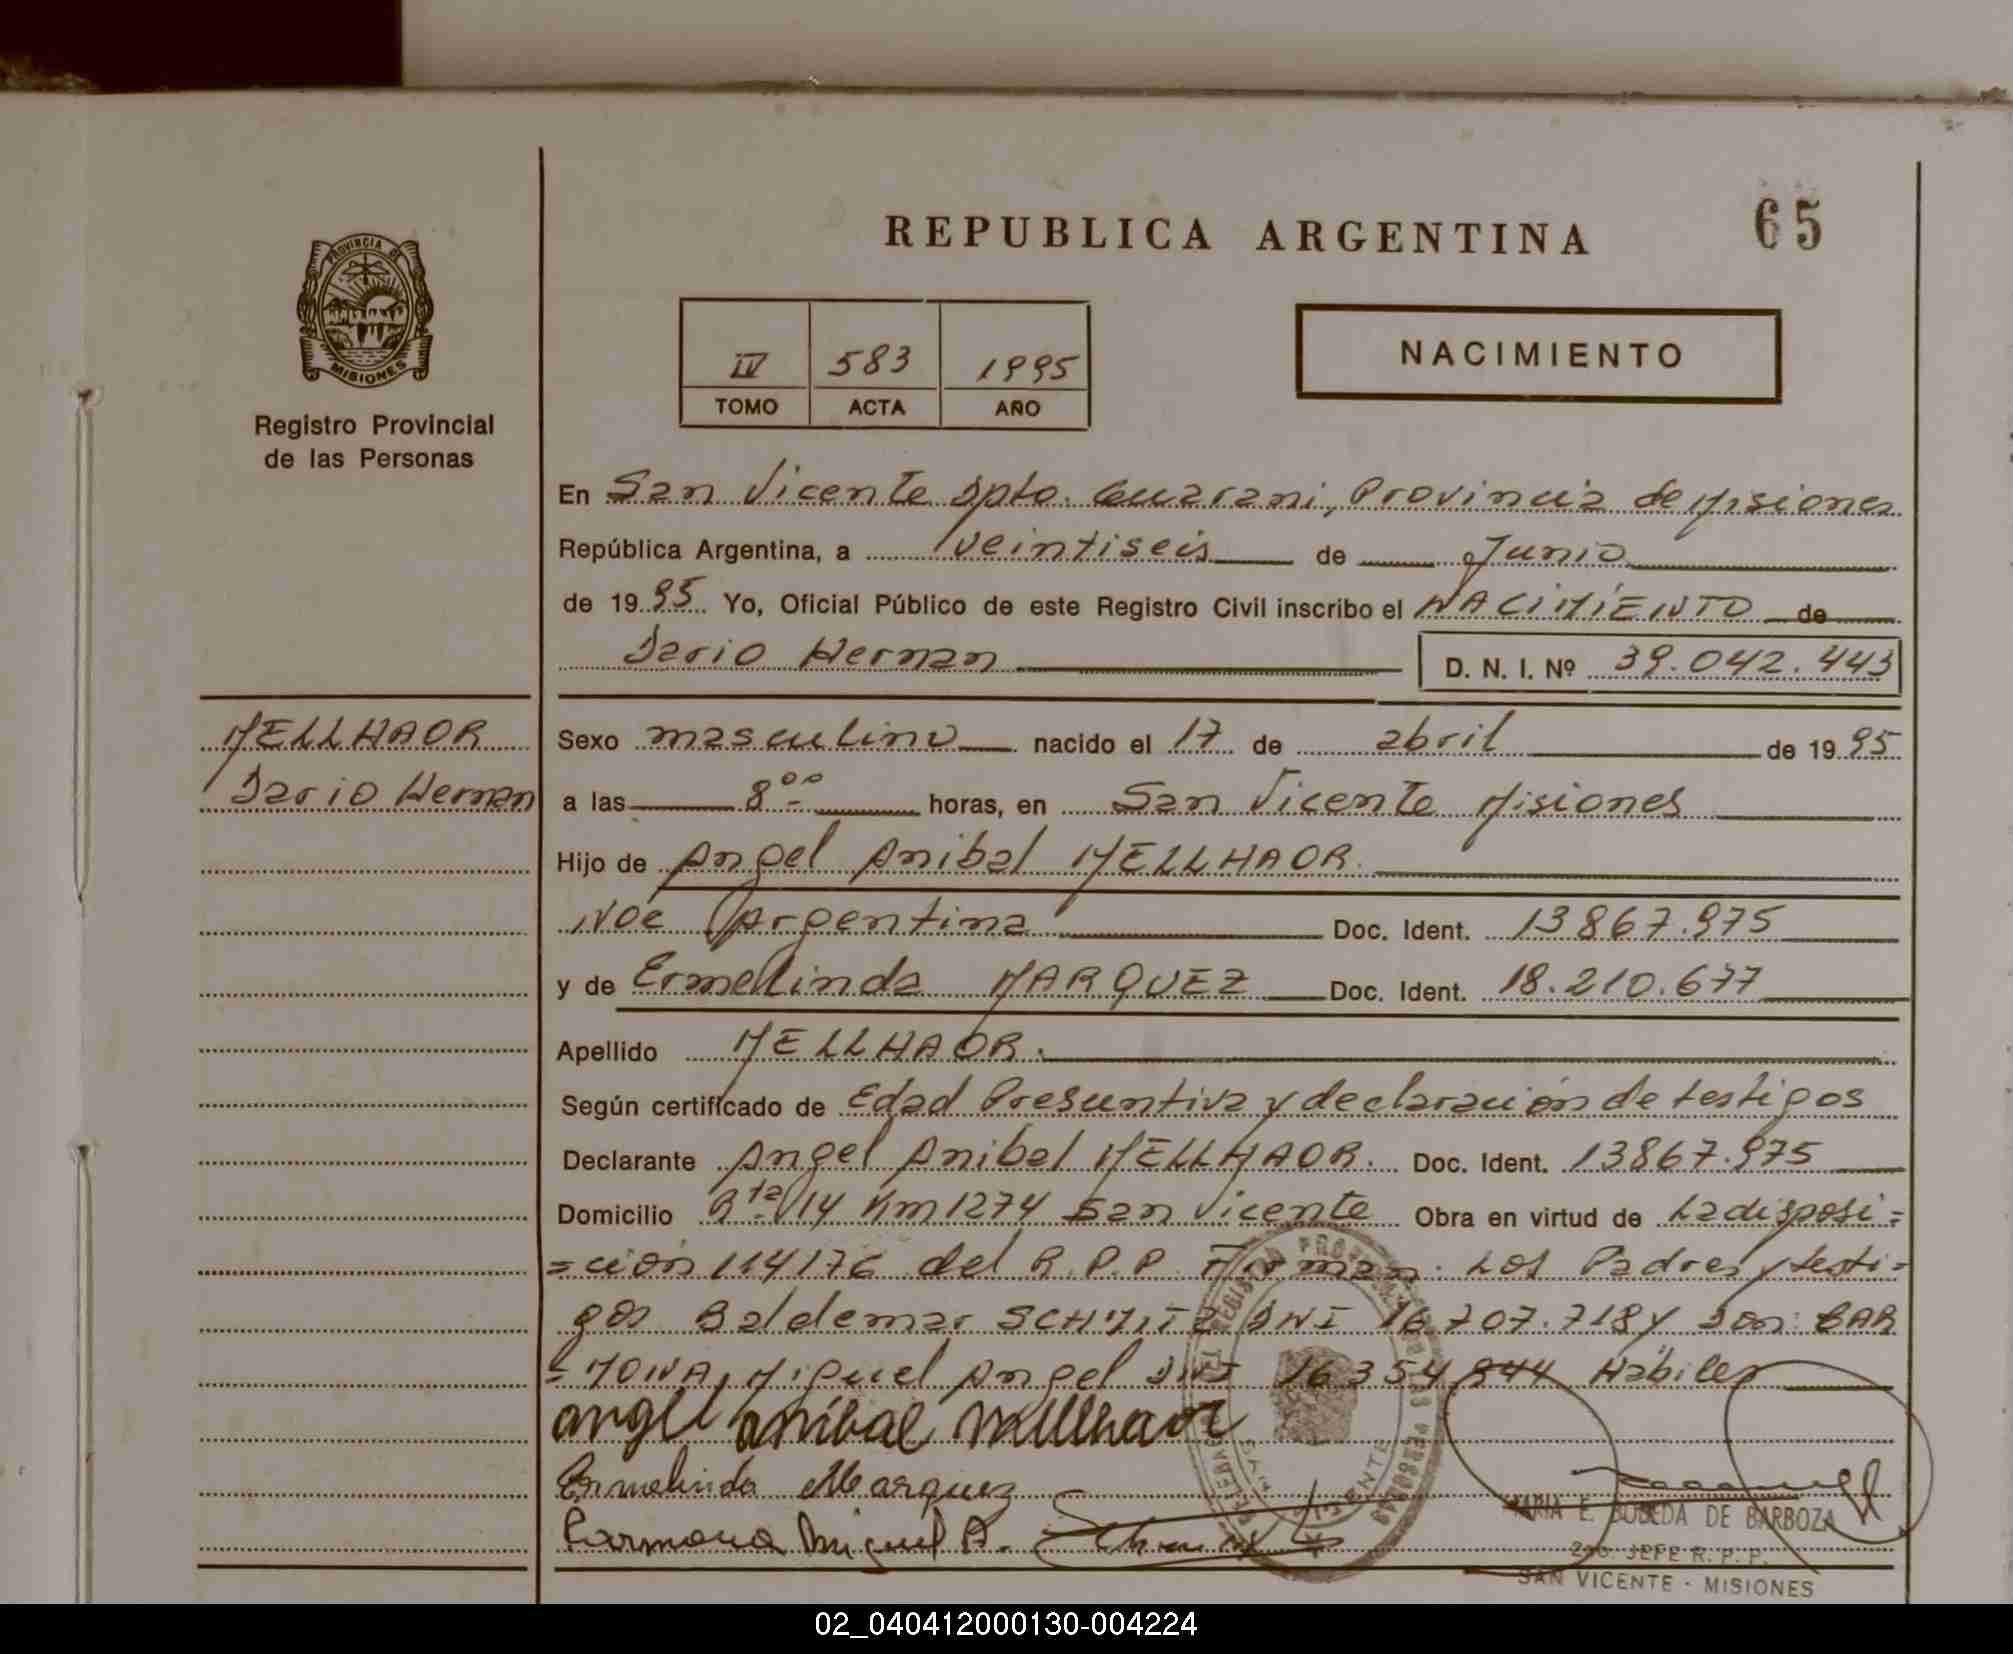 REPUBLICA ARGENTINA
65
PROVINCIA DE
MISIONES
Registro Provincial
de las Personas
IV 583 1995
TOMO ACTA AÑO
NACIMIENTO
En San Vicente Dpto. Guarani, Provincia de Misiones
República Argentina, a veintiseis de Junio
de 1995 Yo, Oficial Público de este Registro Civil inscribo el NACIMIENTO de
Dario Hernan D. N. I. Nº 39.042.443
MELLHAOR
Dario Hernan
Sexo masculino nacido el 17 de abril de 1995
a las 8ºº horas, en San Vicente Misiones
Hijo de Angel Anibal MELLHAOR.
Noe Argentina Doc. Ident. 13867.975
y de Ermelinda MARQUEZ Doc. Ident. 18.210.677
Apellido MELLHAOR.
Según certificado de Edad Presuntiva y declaración de testigos
Declarante Angel Anibal MELLHAOR. Doc. Ident. 13867.975
Domicilio Rta 14 Km 1274 San Vicente Obra en virtud de La disposi=
=ción 114176 del R.P.P. Firman: Los Padres y testi=
gos Baldemar SCHMITZ DNI 16707.718 y Don: CAR
=MONA, Miguel Angel DNI 16354944 Habiles
angel anibal mellhaor
Ermelinda Marquez
Carmona Miguel A.
MARIA E. BOBEDA DE BARBOZA
2do. JEFE R. P. P.
SAN VICENTE - MISIONES
02_040412000130-004224